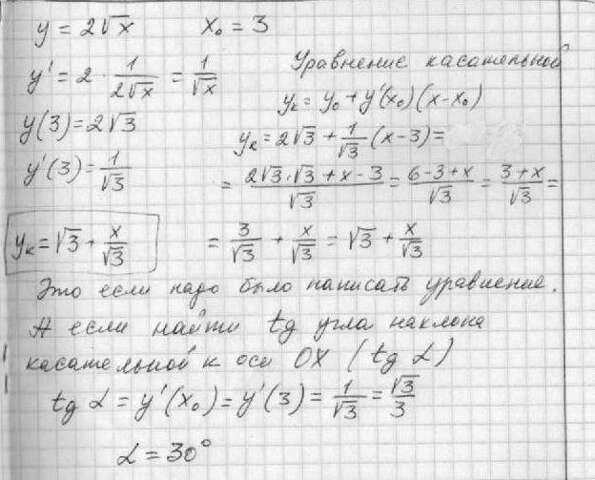 y = 2√x    x₀ = 3
y' = 2 · 1/(2√x) = 1/√x
Уравнение касательной
yₖ = y₀ + y'(x₀)(x - x₀)
y(3) = 2√3
yₖ = 2√3 + 1/√3 (x - 3) =
y'(3) = 1/√3
= (2√3·√3 + x - 3)/√3 = (6 - 3 + x)/√3 = (3 + x)/√3 =
yₖ = √3 + x/√3
= 3/√3 + x/√3 = √3 + x/√3
Это если надо было написать уравнение.
А если найти tg угла наклона
касательной к оси OX (tg α)
tg α = y'(x₀) = y'(3) = 1/√3 = √3/3
α = 30°